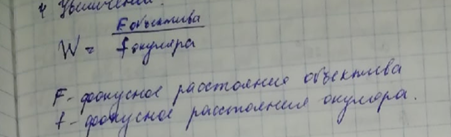 4 Увеличений.
W = F объектива / f окуляра
F - фокусное расстояние объектива
f - фокусное расстояния окуляра.